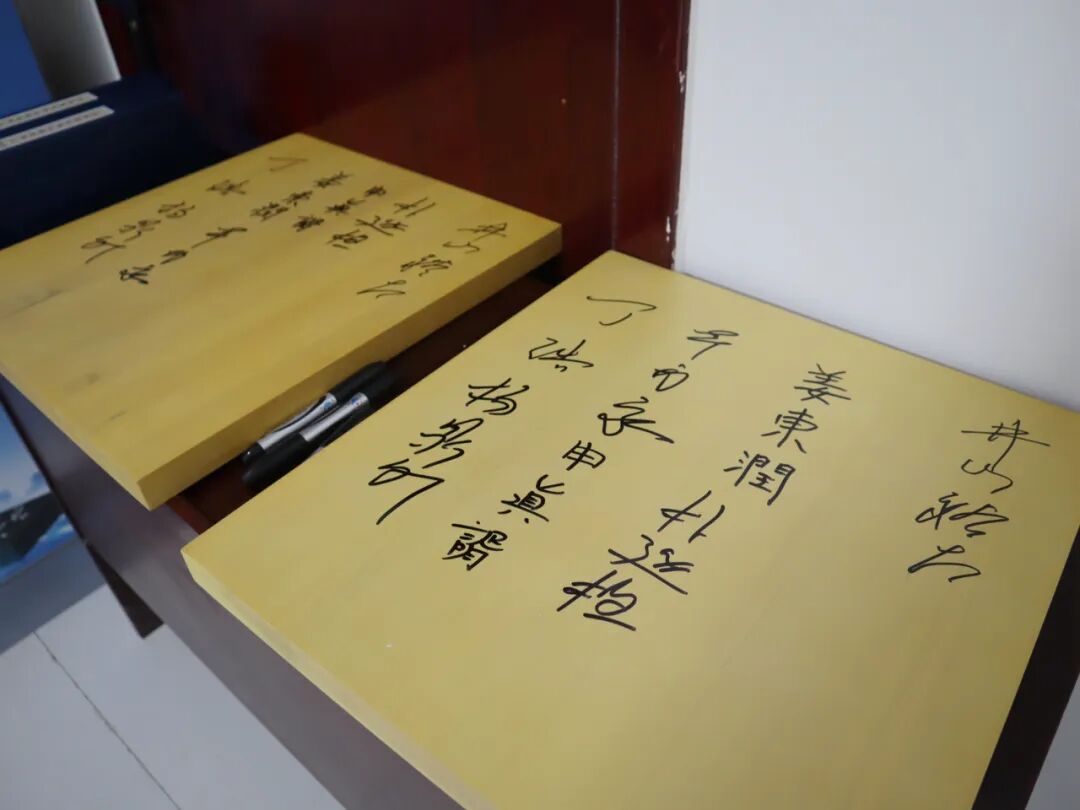 井山裕太
朴廷桓
申眞諝
姜東潤
芈昱廷
丁浩
杨鼎新
井山裕太
姜東潤
朴廷桓
芈昱廷
申眞諝
丁浩
杨鼎新